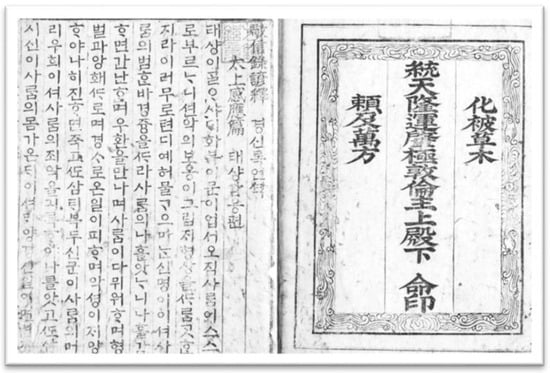 化被草木
統天隆運肇極敦倫主上殿下 命印
賴及萬方
敬信錄諺釋 경신록언셕
太上感應篇 태샹감응편
태샹이ᄀᆞᆯᄋᆞ샤ᄃᆡ화복이문이업서오직사ᄅᆞᆷ이스스
로부르ᄂᆞ니션악의보응이그림재형샹을ᄯᆞ롬ᄀᆞᆺᄒᆞᆫ
지라이러무로텬디예허믈ᄀᆞ으마ᄂᆞᆫ신명이이셔사
ᄅᆞᆷ의범ᄒᆞᆫ바경즁을ᄯᆞ라사ᄅᆞᆷ의나흘앗ᄂᆞ니나흘감
ᄒᆞ면간난ᄒᆞ며우환을만나며사ᄅᆞᆷ이다뮈워ᄒᆞ며형
벌과앙홰ᄯᆞ로며경ᄉᆞ로온일이피ᄒᆞ며악셩이저양
ᄒᆞ야나히진ᄒᆞ면죽고ᄯᅩ삼ᄐᆡ부두신군이사ᄅᆞᆷ의머
리우희이셔사ᄅᆞᆷ의죄악을 나흘앗고ᄯᅩ삼
시신이사ᄅᆞᆷ의몸가온ᄃᆡ이셔ᄆᆡ양